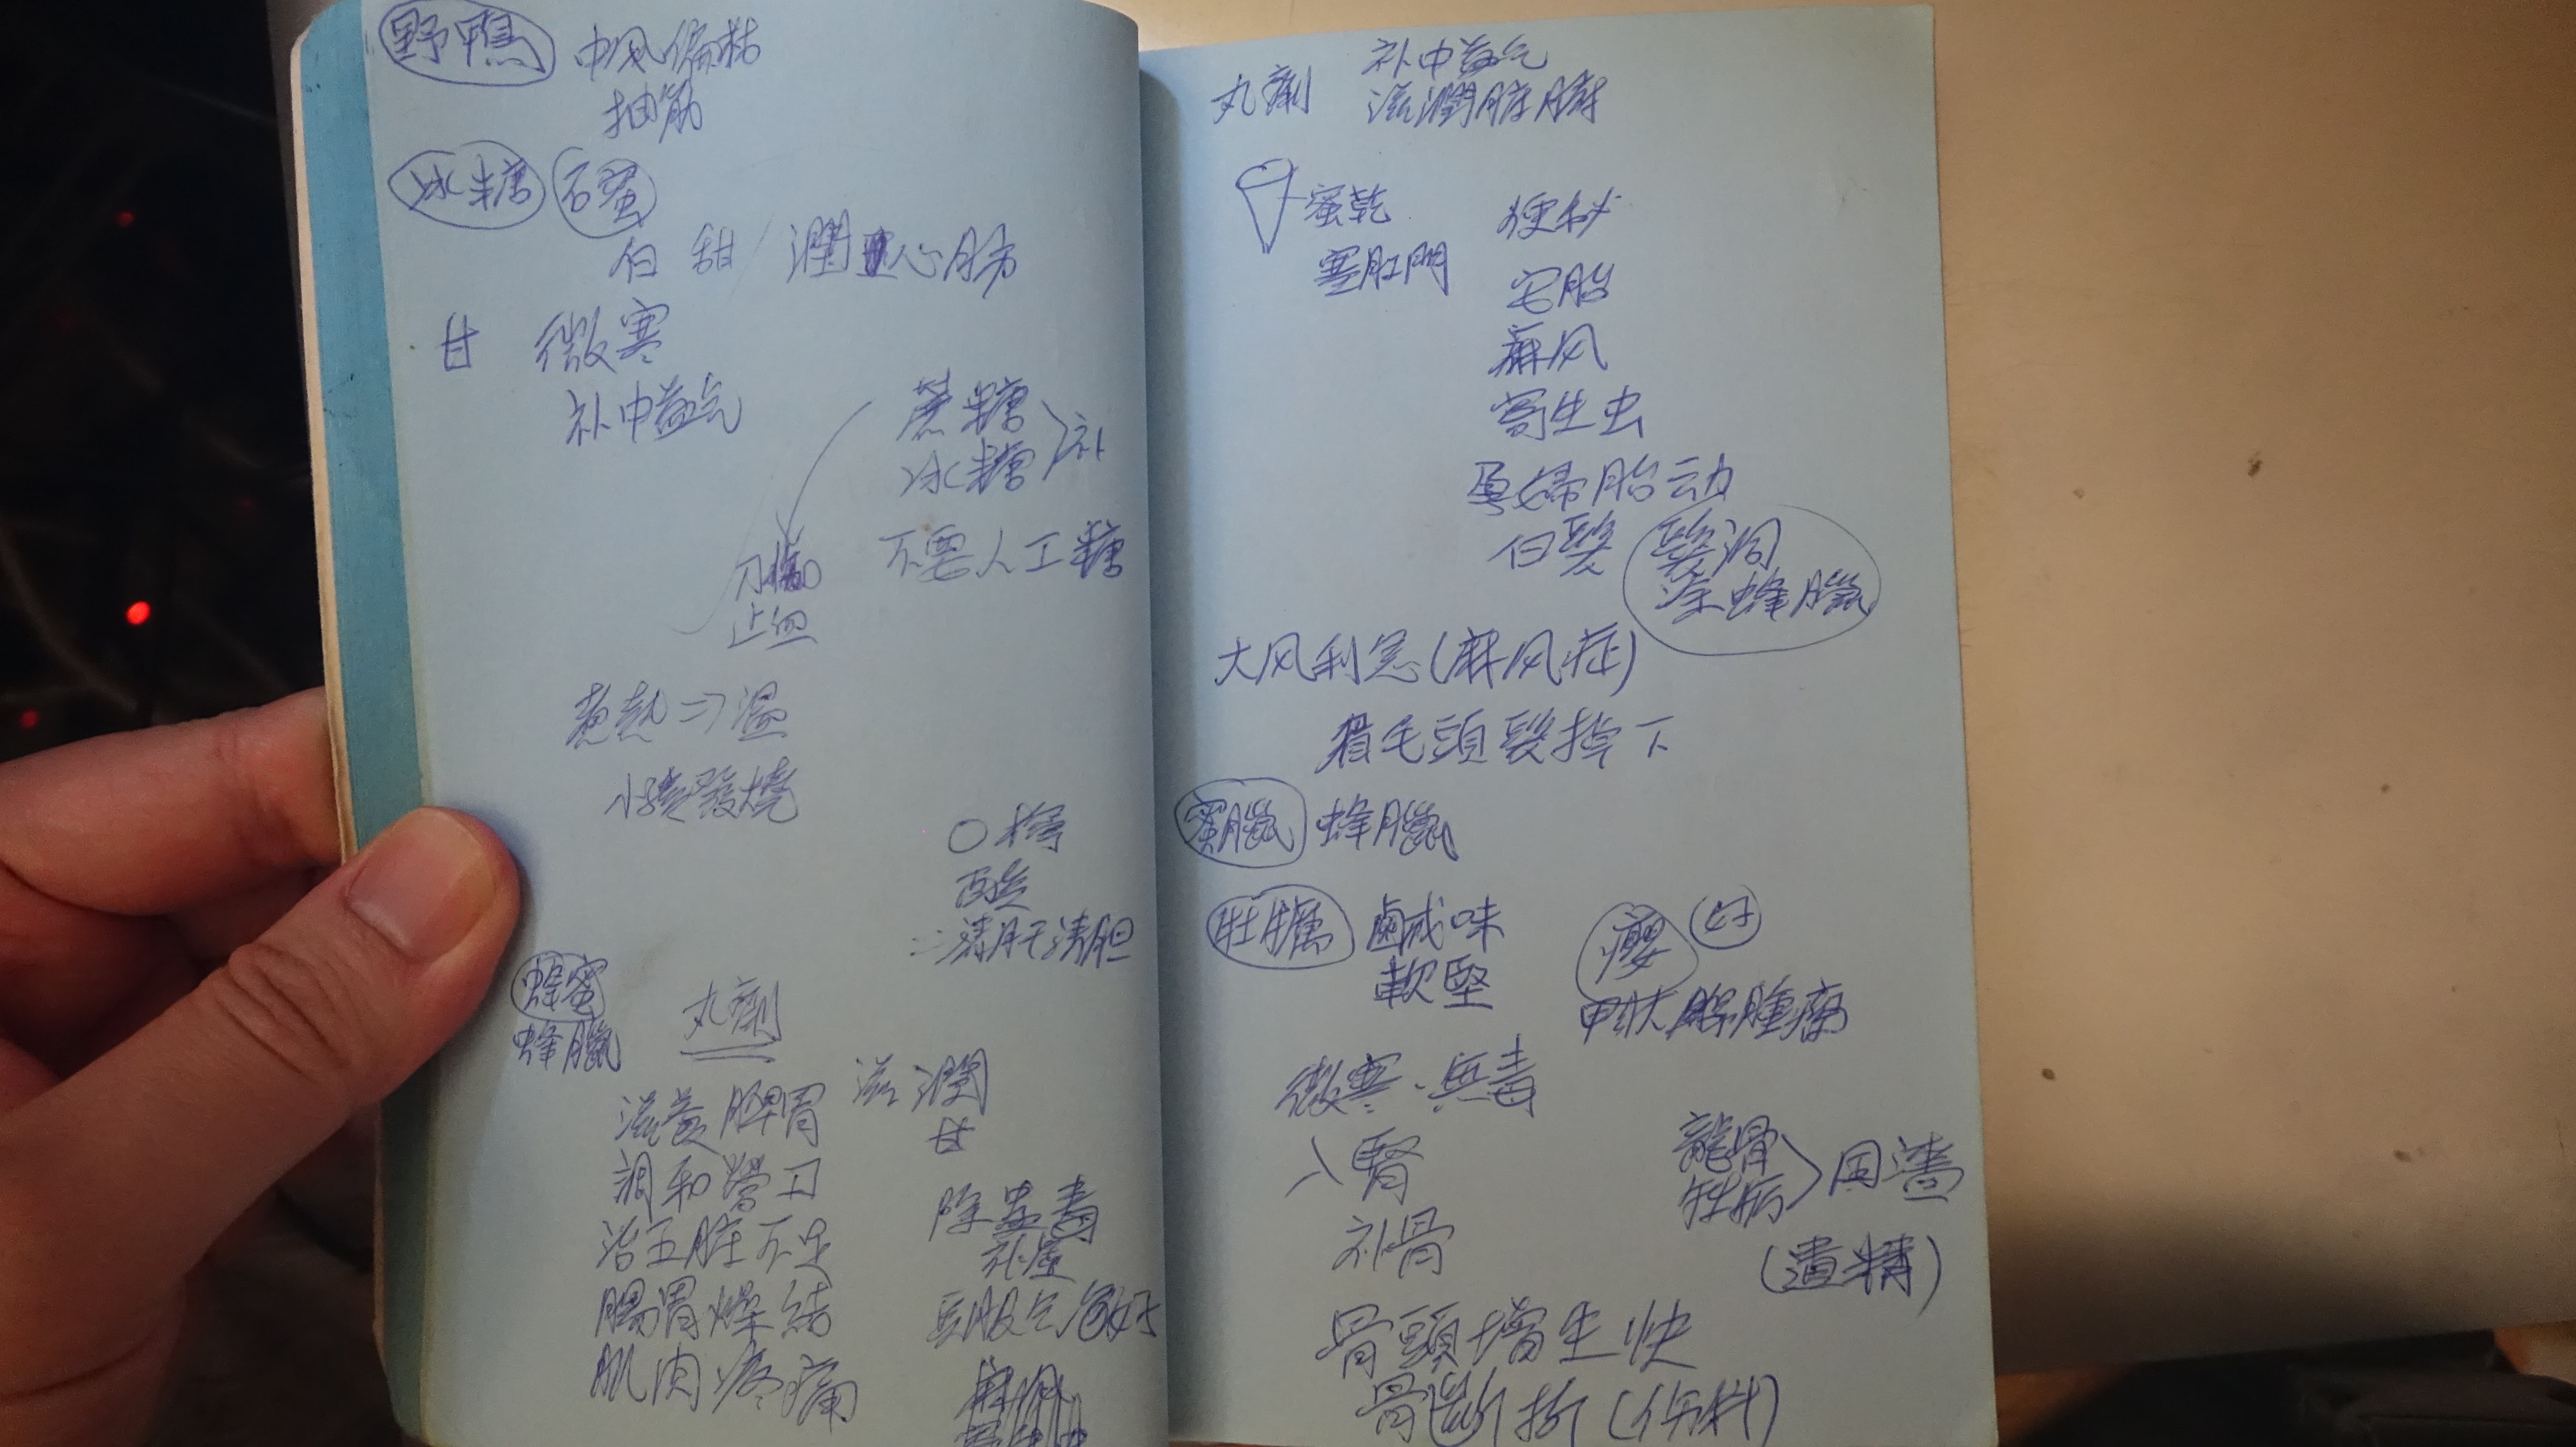 野鴨 中风偏枯
抽筋
冰糖 石蜜
白 甜 / 潤心肺
甘 微寒
补中益气
蔗糖
冰糖 > 补
不要人工糖
刀傷
止血
惹熱 => 溫
小孩發燒
酸
清肝清胆
蜂蜜
蜂臘
丸劑
滋潤
甘
滋養脾胃
調和營卫
治五脏不足
腸胃燥結
肌肉疼痛
除虫毒
补虛
丸劑 补中益气
滋潤脏腑
蜜乾
塞肛門
便秘
安胎
麻风
寄生虫
孕婦胎动
白髮 髮洞
塗蜂臘
大风利急(麻风症)
眉毛頭髮掉下
蜜臘 蜂臘
牡蠣 鹹味
軟堅
癭 好
甲狀腺腫瘤
微寒·無毒
入腎
补骨
龍骨
牡蛎 > 固濇
(遺精)
骨頭增生快
骨斷折(伤科)